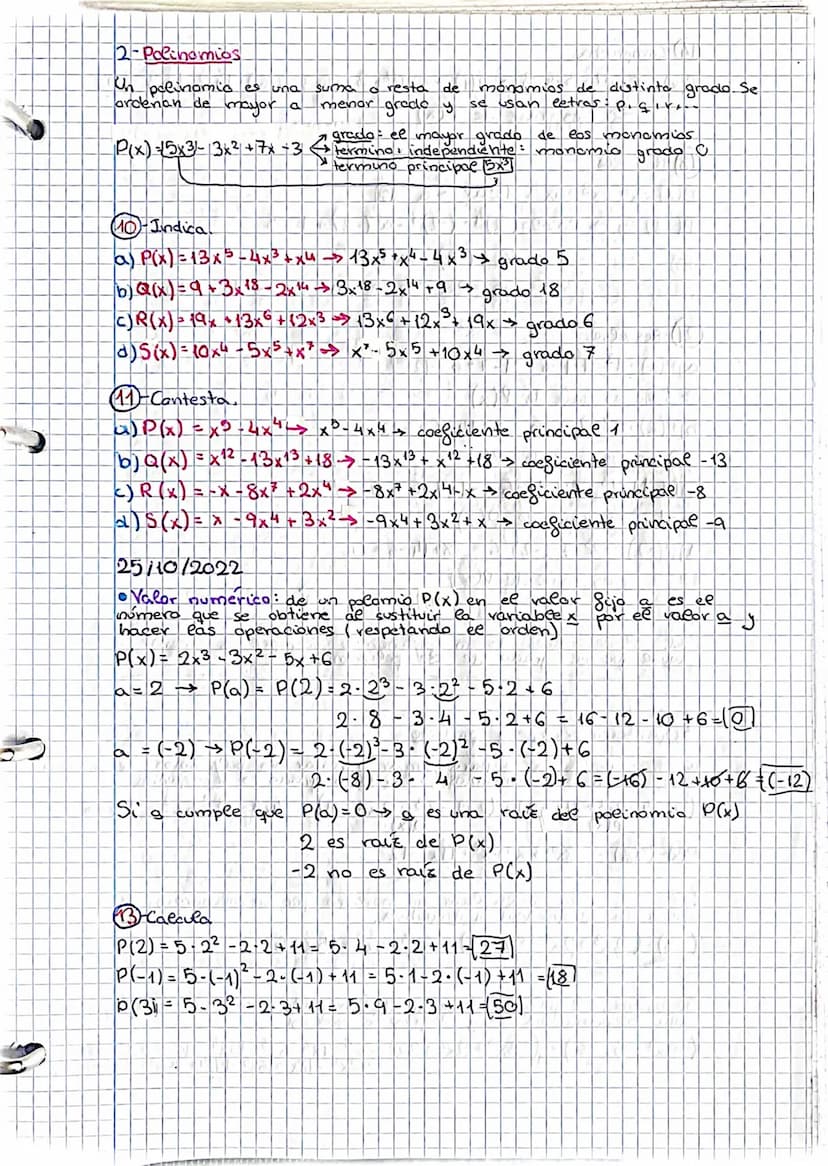 2-Polinomios
Un polinomio es una suma o resta de mónomios de distinto grado. Se
ordenan de mayor a menor grado y se usan letras: p, q, r, ...
P(x) = 5x³ - 3x² + 7x - 3
grado: el mayor grado de los monomios
termino independiente: monomio grado 0
termino principal 5x³
10-Indica.
a) P(x) = 13x⁵ - 4x³ + x4 → 13x⁵ + x⁴ - 4x³ → grado 5
b) Q(x) = 9 + 3x¹⁸ - 2x¹⁴ → 3x¹⁸ - 2x¹⁴ + 9 → grado 18
c) R(x) = 19x + 13x⁶ + 12x³ → 13x⁶ + 12x³ + 19x → grado 6
d) S(x) = 10x⁴ - 5x⁵ + x⁷ → x⁷ - 5x⁵ + 10x⁴ → grado 7
11-Contesta.
a) P(x) = x⁵ - 4x⁴ → x⁵ - 4x4 → coeficiente principal 1
b) Q(x) = x¹² - 13x¹³ + 18 → -13x¹³ + x¹² + 18 → coeficiente principal -13
c) R(x) = -x - 8x⁷ + 2x⁴ → -8x⁷ + 2x⁴ - x → coeficiente principal -8
d) S(x) = x - 9x⁴ + 3x² → -9x4 + 3x² + x → coeficiente principal -9
25/10/2022
• Valor numérico: de un polomio P(x) en el valor fijo a es el
número que se obtiene al sustituir la variable x por el valor a y
hacer las operaciones (respetando el orden)
P(x) = 2x³ - 3x² - 5x + 6
a = 2 → P(a) = P(2) = 2·2³ - 3·2² - 5·2 + 6
2·8 - 3·4 - 5·2 + 6 = 16 - 12 - 10 + 6 = 0
a = (-2) → P(-2) = 2·(-2)³ - 3·(-2)² - 5·(-2) + 6
2·(-8) - 3· 4 - 5·(-2) + 6 = (-16) - 12 + 10 + 6 = (-12)
Si a cumple que P(a) = 0 → a es una raíz del polinomio P(x)
2 es raíz de P(x)
-2 no es raíz de P(x)
13-Calcula
P(2) = 5·2² - 2·2 + 11 = 5·4 - 2·2 + 11 = 27
P(-1) = 5·(-1)² - 2·(-1) + 11 = 5·1 - 2·(-1) + 11 = 18
P(3) = 5·3² - 2·3 + 11 = 5·9 - 2·3 + 11 = 50